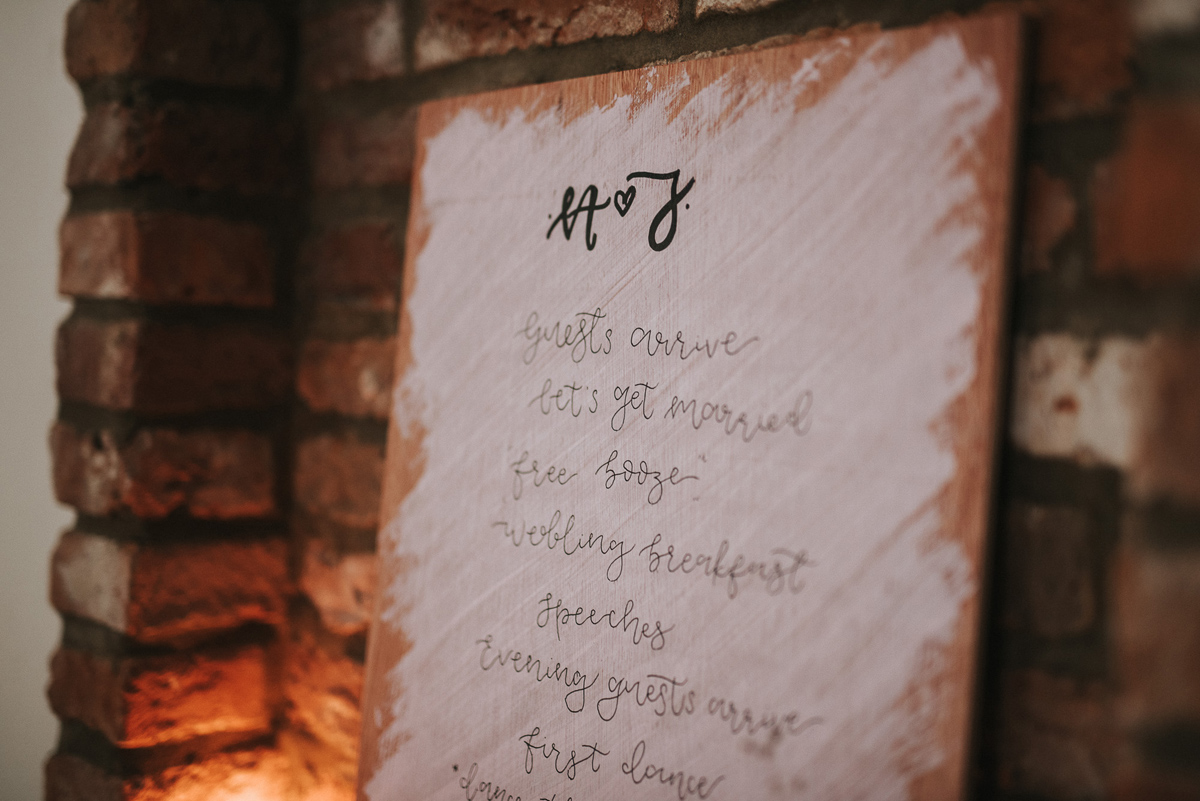 ·A♡J·
guests arrive
let's get married
"free booze"
wedding breakfast
speeches
Evening guests arrive
first dance